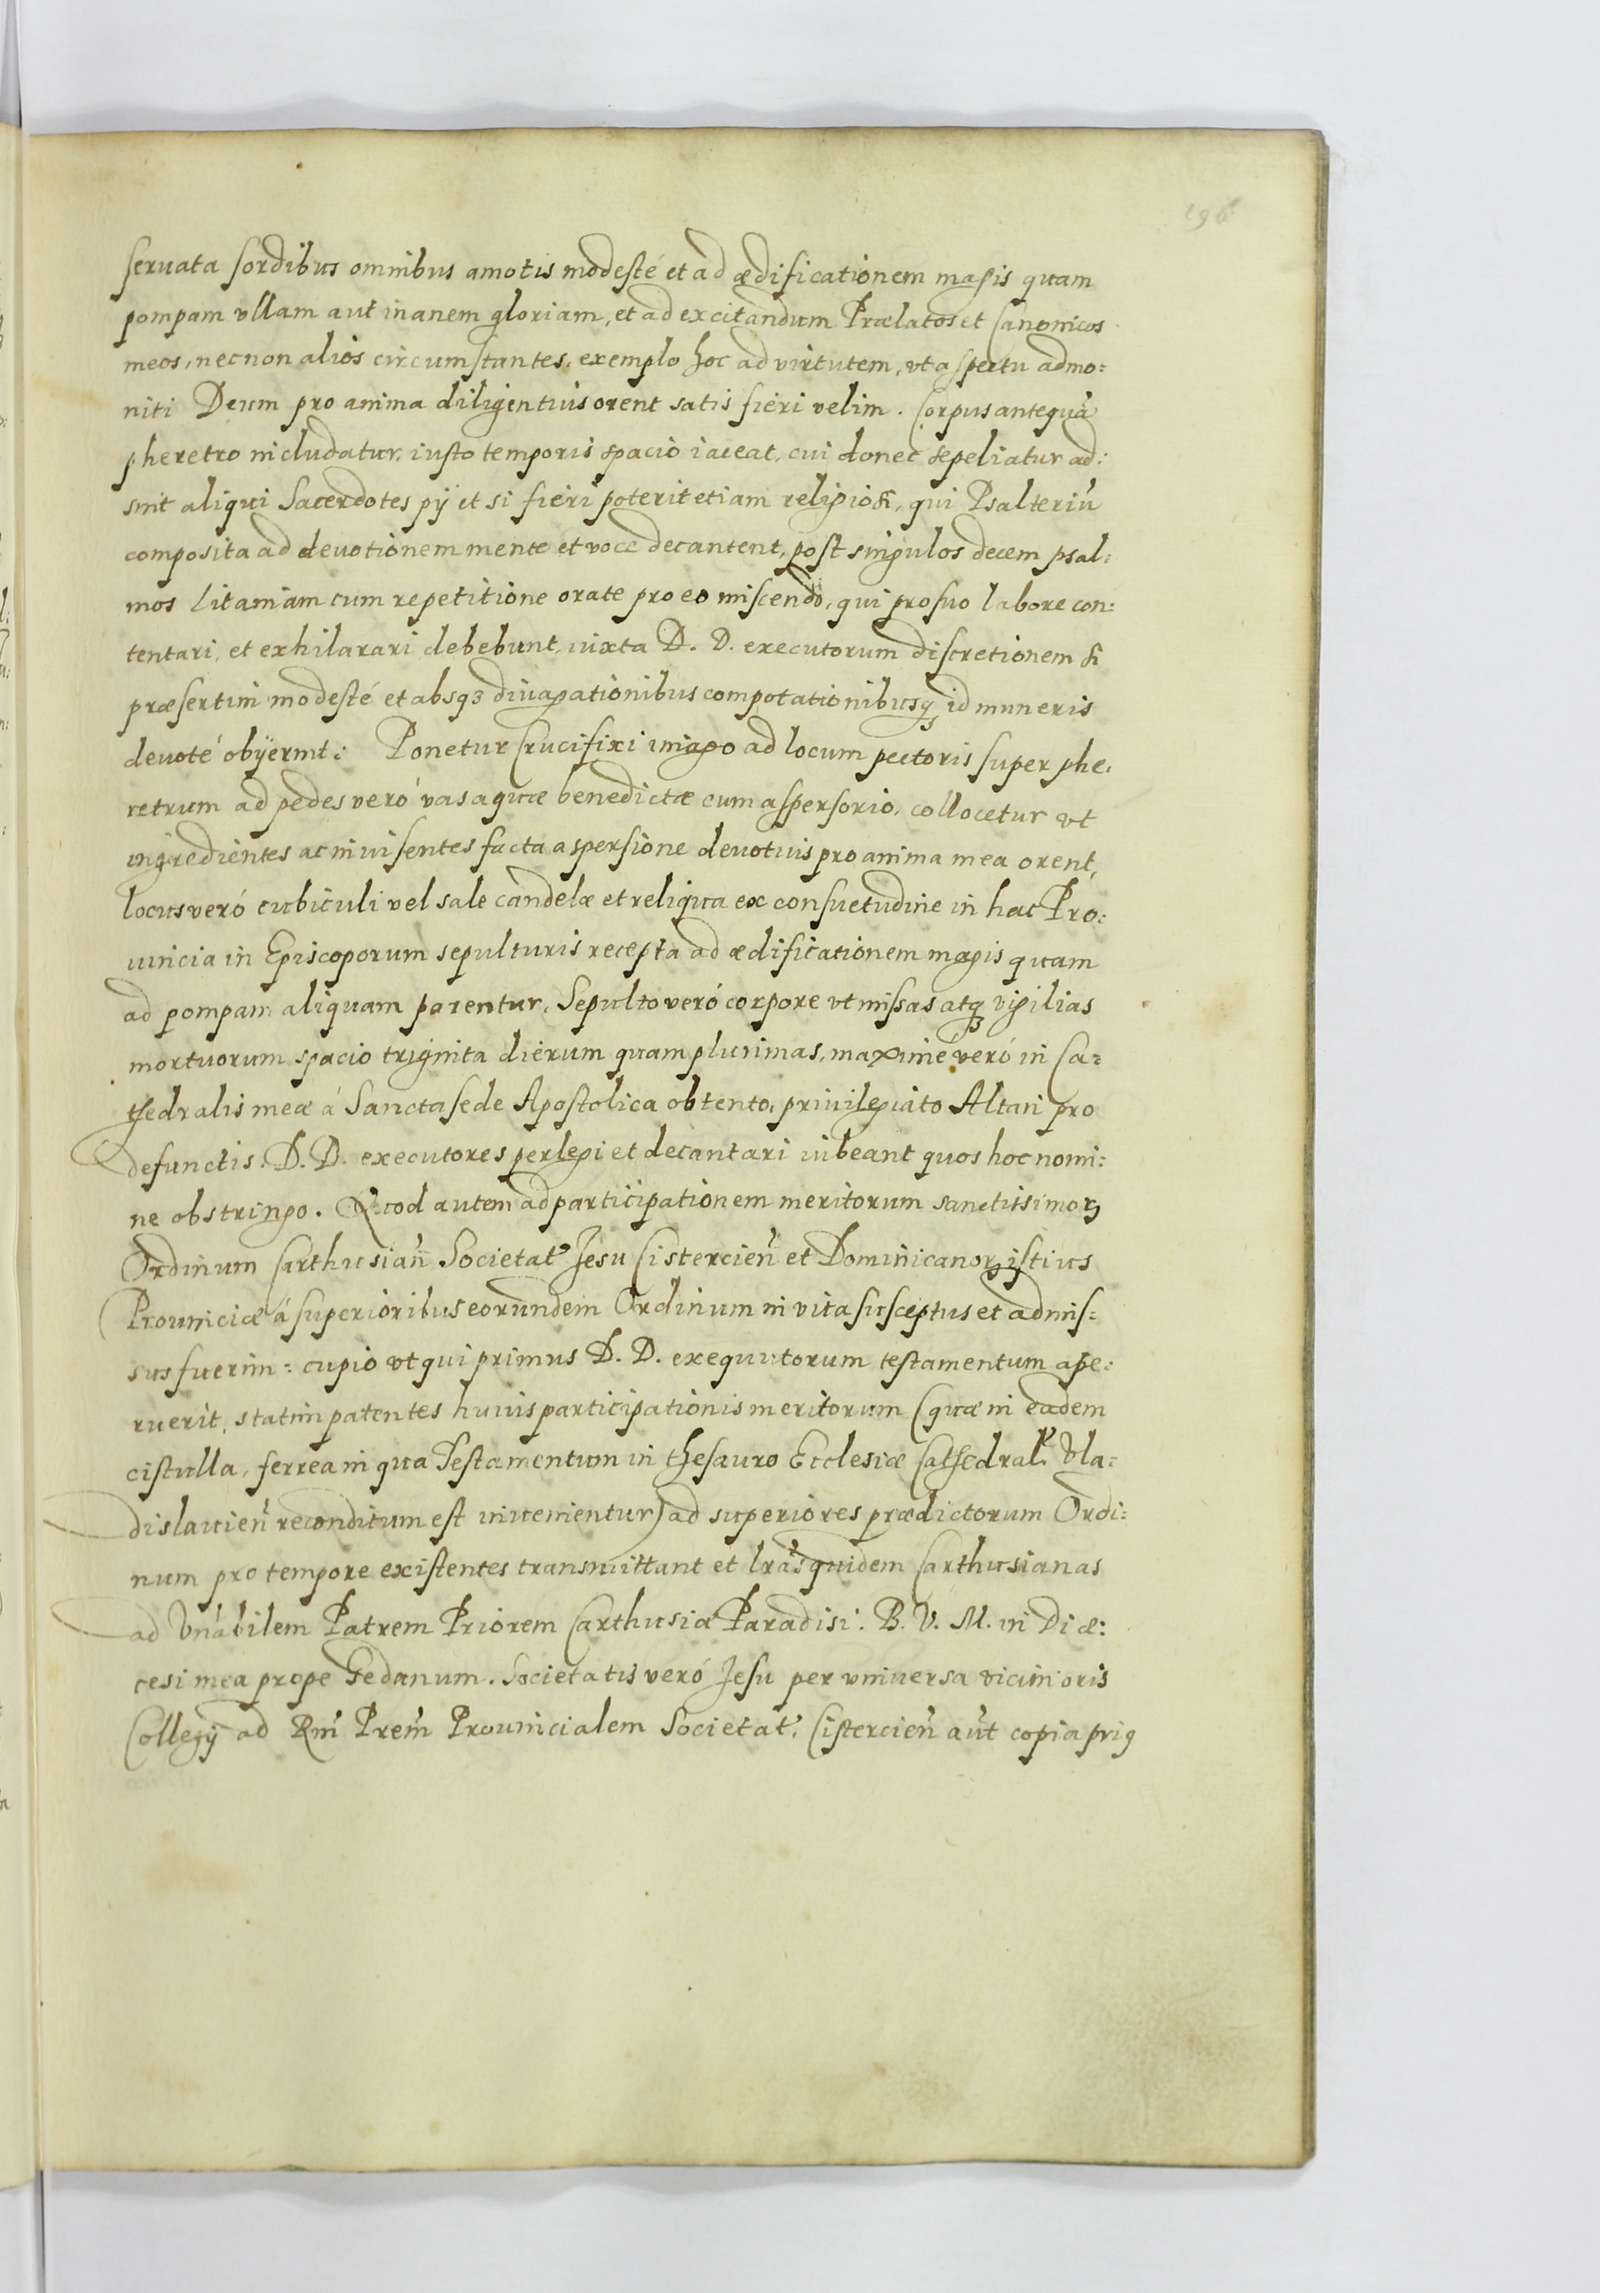 196
seruata sordibus omnibus amotis modesté et ad ædificationem magis quam
pompam vllam aut inanem gloriam, et ad excitandum Prælatos et Canonicos
meos, necnon alios circumstantes, exemplo hoc ad virtutem, vt aspectu admo:
niti Deum pro anima diligentius orent satis fieri velim. Corpus antequā
pheretro includatur, iusto temporis spacio iaceat, cui donec sepeliatur ad:
sint aliqui Sacerdotes pÿ et si fieri poterit etiam religiosi, qui Psalteriū
composita ad deuotionem mente et voce decantent, post singulos decem psal:
mos Litaniam cum repetitione orate pro eo miscendo, qui pro suo labore con:
tentari, et exhilarari debebunt, iuxta D. D. executorum discretionem si
præsertim modesté et absq3 diuagationibus compotationibusq3 id muneris
deuoté obÿerint: Ponetur Crucifixi imago ad locum pectoris super phe:
retrum ad pedes veró vas aquæ benedictæ cum aspersorio, collocetur vt
ingredientes ac inuisentes facta aspersione deuotius pro anima mea orent,
locus veró cubiculi vel sale candelæ et reliqua ex consuetudine in hac Pro:
uincia in Episcoporum sepulturis recepta ad ædificationem magis quam
ad pompam aliquam parentur. Sepulto veró corpore vt missas atq3 vigilias
mortuorum spacio triginta dierum quam plurimas, maximé veró in Ca:
thedralis meæ á Sancta sede Apostolica obtento, priuilegiato Altari pro
defunctis. D. D. executores perlegi et decantari iubeant quos hoc nomi:
ne obstringo. Quod autem ad participationem meritorum sanctissimoꝝ
Ordinum Carthusiañ Societat Jesu Cistercieñ et Dominicanoꝝ istius
Prouinciæ á superioribus eorundem Ordinum in vita susceptus et admis:
sus fuerim: cupio vt qui primus D. D. exequutorum testamentum ape:
ruerit, statim patentes huius participationis meritorum (quæ in eadem
cistulla, ferrea in qua Testamentum in thesauro Ecclesiæ Cathedral Vla:
dislauieñ reconditum est inuenientur) ad superiores prædictorum Ordi:
num pro tempore existentes transmittant et lras quidem Carthusianas
ad Vnabilem Patrem Priorem Carthusiæ Paradisi B. V. M. in Diæ:
cesi mea prope Gedanum. Societatis veró Jesu per vniuersa vicinioris
Collegÿ ad Rm̄ Prem̄ Prouincialem Societat. Cistercieñ aūt copia prig